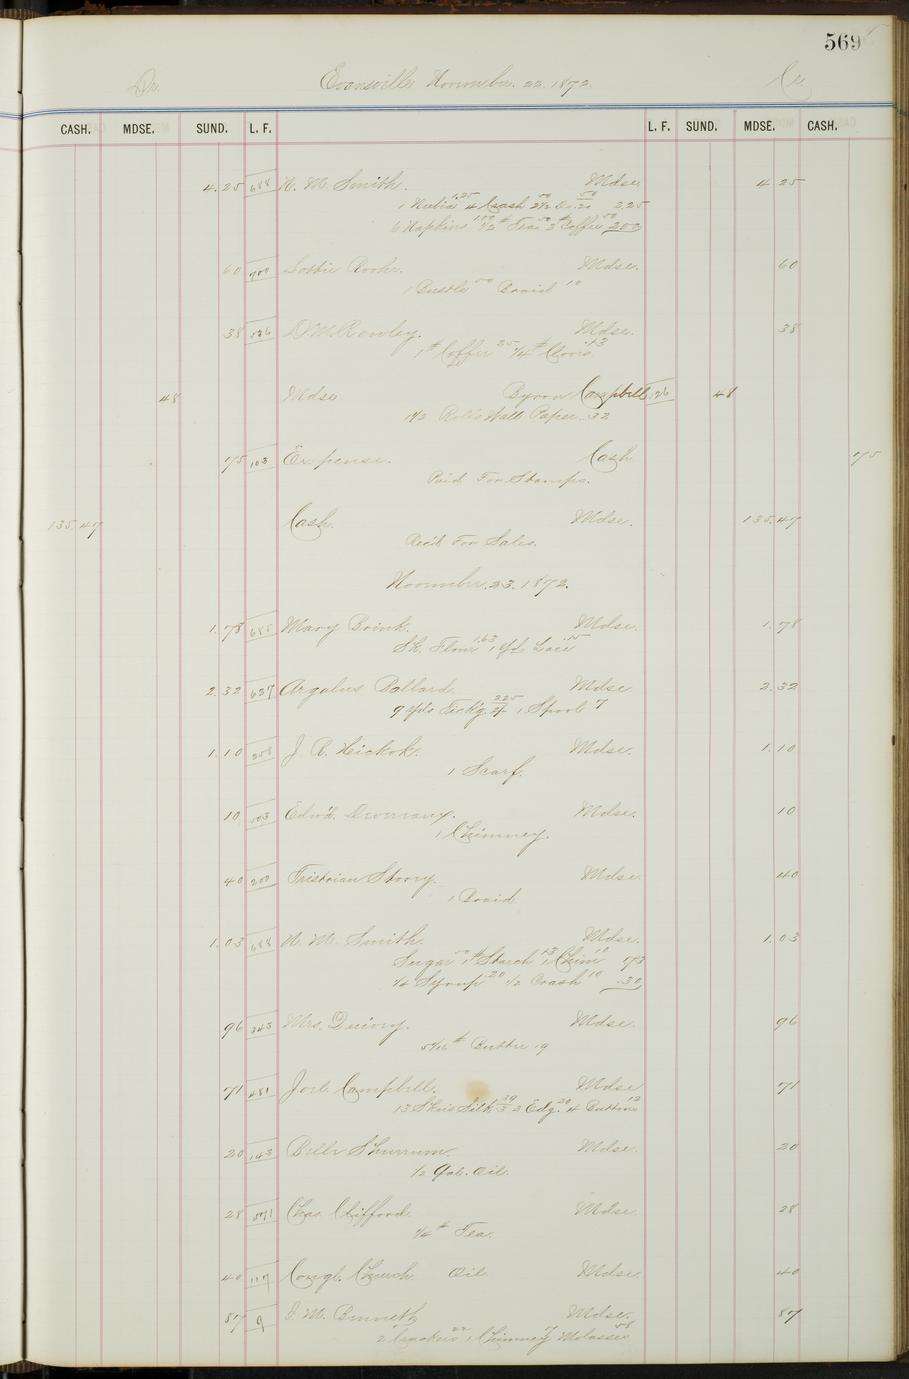 569
Dr. Evansville November. 22. 1872. Cr.
CASH. MDSE. SUND. L. F. L. F. SUND. MDSE. CASH.
4.25 688 N. M. Smith. Mdse 4 25
1 Nubia 1.25 4 Crash 50 2½ Do. 20 50 2.25
6 Napkins 1.00 ½ # Tea 50 2 # Coffee 50 200
60 700 Lottie Mdse. 60
1 Bustle 50 Braid 10
38 526 D. M. Rowley. Mdse. 38
1 # Coffee 25 ¼ # Clovs. 13
48 Mdse Byron Campbell 126 48
1½ Rolls Wall Paper. 32
75 103 Expense. Cash 75
Paid For Stamps.
135.47 Cash. Mdse. 135.47
Rec'd For Sales.
November. 23. 1872.
1.78 685 Mary Brink. Mdse. 1.78
Sk. Flour 1.63 1 yd Lace 15
2.32 627 Argalus Ballard. Mdse 2.32
9 yds Tick'g. 225 1 Spool 7
1.10 258 J. R. Hickok. Mdse. 1.10
1 Scarf.
10 503 Edw'd. Mdse. 10
1 Chimney.
40 200 Tristrian Story. Mdse. 40
1 Braid
1.03 688 N. M. Smith. Mdse. 1.03
Sugar 50 1 # Starch 13 1 Chim 10 73
¼ Syrup 20 ½ Crash 10 .30
96 343 Mrs. Quivey. Mdse. 96
# Butter 19
71 481 Joel Campbell. Mdse 71
13 Skeins Silk 39 2 Edg. 20 4 Buttons 12
20 143 Bille Shurrum. Mdse. 20
½ Gal. Oil.
28 571 Chas. Clifford. Mdse. 28
¼ # Tea.
40 117 Congl. Church Oil. Mdse. 40
87 9 M. Bennett Mdse. 87
2 Crackers 22 1 Chimney 7 Molasses 58